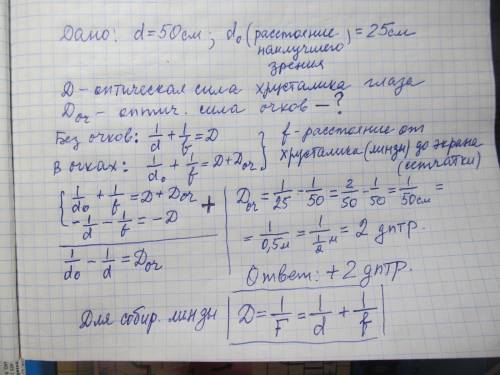 Дано: d=50см; d₀ (расстояние наилучшего зрения) = 25см
D – оптическая сила хрусталика глаза
Dоч – оптич. сила очков – ?
Без очков: 1/d + 1/f = D
В очках: 1/d₀ + 1/f = D + Dоч
} f – расстояние от
хрусталика (линзы) до экрана
(сетчатки)
{ 1/d₀ + 1/f = D + Dоч
- 1/d - 1/f = -D
+
1/d₀ - 1/d = Dоч
Dоч = 1/25 - 1/50 = 2/50 - 1/50 = 1/50см =
= 1/0,5м = 1/(1/2)м = 2 дптр.
Ответ: +2 дптр.
Для собир. линзы | D = 1/F = 1/d + 1/f